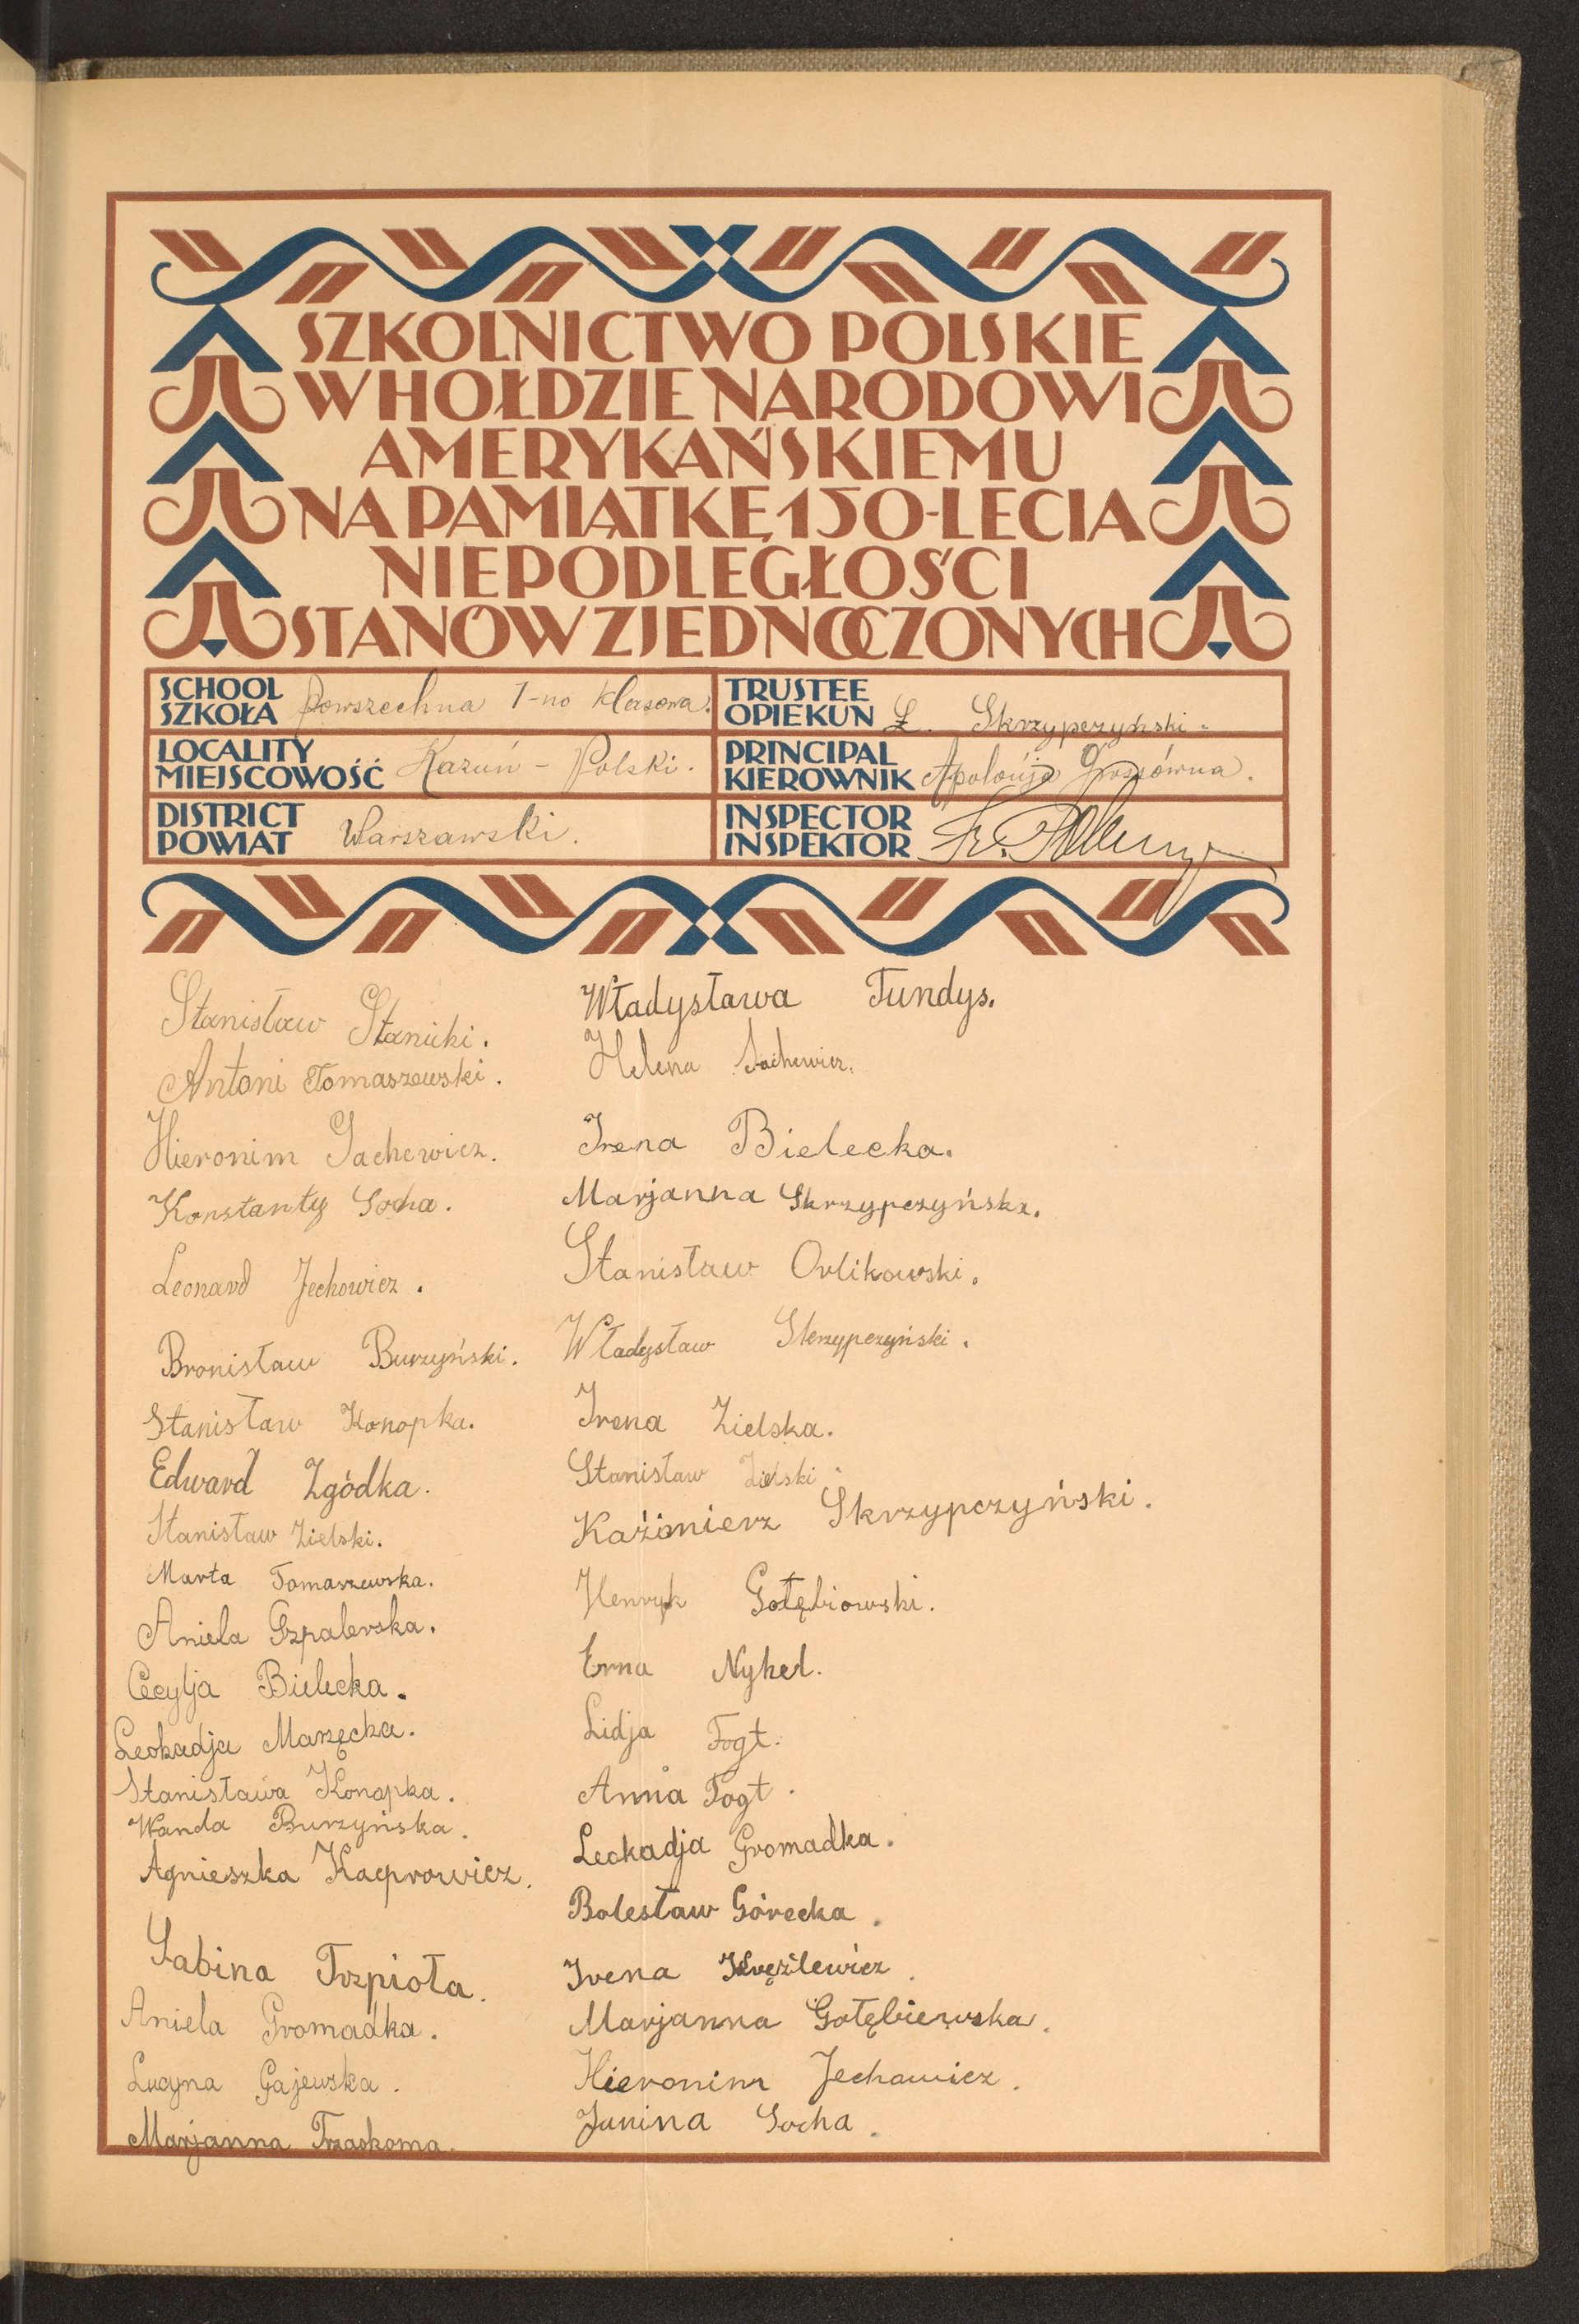 SZKOLNICTWO POLSKIE
W HOŁDZIE NARODOWI
AMERYKAŃSKIEMU
NA PAMIĄTKĘ 150-LECIA
NIEPODLEGŁOŚCI
STANÓW ZJEDNOCZONYCH
SCHOOL
SZKOŁA Powszechna 1-no klasowa.
TRUSTEE
OPIEKUN Ł. Skrzypczyński.
LOCALITY
MIEJSCOWOŚĆ Kazuń - Polski.
PRINCIPAL
KIEROWNIK Apolonja
DISTRICT
POWIAT Warszawski.
INSPECTOR
INSPEKTOR Fr.
Stanisław Stanicki.
Antoni Tomaszewski.
Hieronim Jachewicz.
Konstanty Socha.
Leonard Jechowicz.
Bronisław Burzyński.
Stanisław Konopka.
Edward Zgódka.
Stanisław Zielski.
Marta Tomaszewska.
Aniela Szpalerska.
Cecylja Bielecka.
Leokadja Marzęcka.
Stanisława Konopka.
Wanda Burzyńska.
Agnieszka Kacprowicz.
Sabina Trzpioła.
Aniela Gromadka.
Lucyna Gajewska.
Marjanna Trzaskoma.
Władysława Fundys.
Helena Jachewicz.
Irena Bielecka.
Marjanna Skrzypczyńska.
Stanisław Orlikowski.
Władysław Skrzypczyński.
Irena Zielska.
Stanisław Zielski
Kaźimierz Skrzypczyński.
Henryk Gołębiowski.
Erna Nykel.
Lidja Fogt.
Anna Fogt.
Leokadja Gromadka.
Bolesław Górecka.
Irena Kręźlewicz.
Marjanna Gołębiewska.
Hieronim Jechawicz.
Janina Socha.